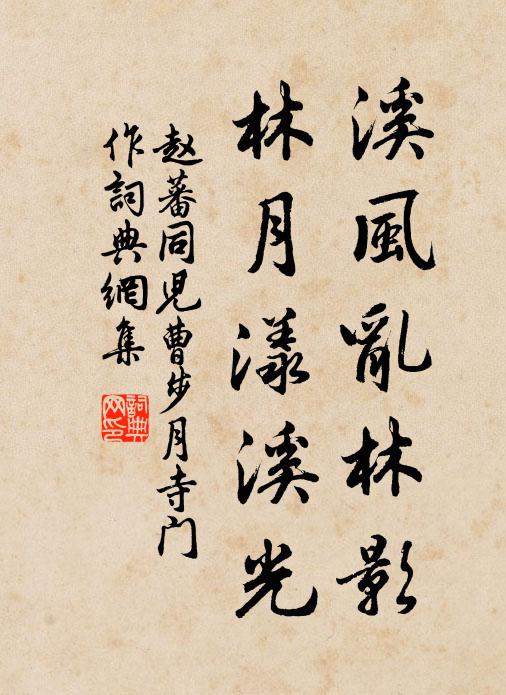 溪風亂林影
林月漾溪光
赵蕃同児曹步月寺门
作詞典網集
詞典
网印